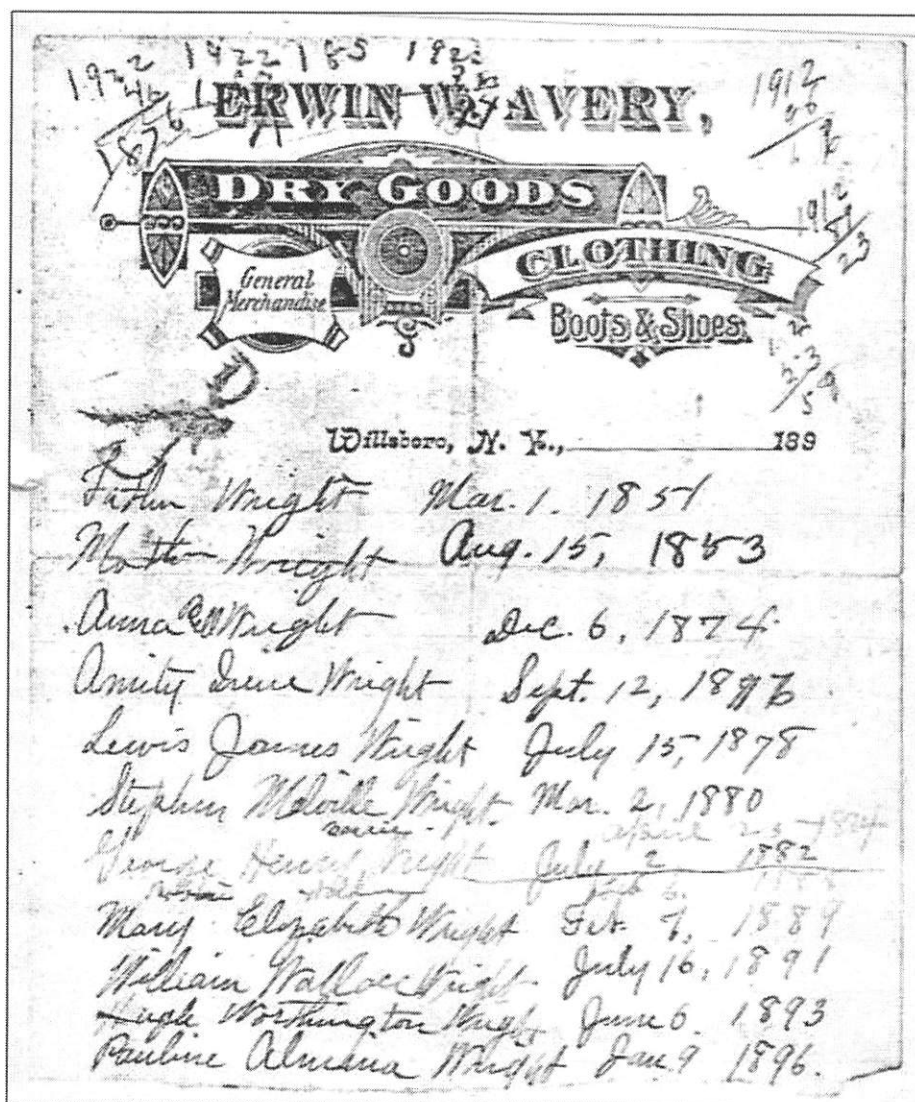 1922 1922 185 192
46
1876
ERWIN W. AVERY,
1912
DRY GOODS
1912
89
23
CLOTHING
General
Merchandise
Boots & Shoes
Willsboro, N. Y., 189
Wright Mar. 1. 1851
Wright Aug. 15, 1853
Anna Wright Dec. 6, 1874
Amity Irene Wright Sept. 12, 1876
Lewis James Wright July 15, 1878
Stephen Melville Wright Mar. 2, 1880
April 1884
George Henry Wright July 2, 1882
Feb 6.
Mary Elizabeth Wright Feb. 7, 1889
William Wallace Wright July 16, 1891
Hugh Worthington Wright June 6. 1893
Pauline Almeina Wright Jan. 9 1896.